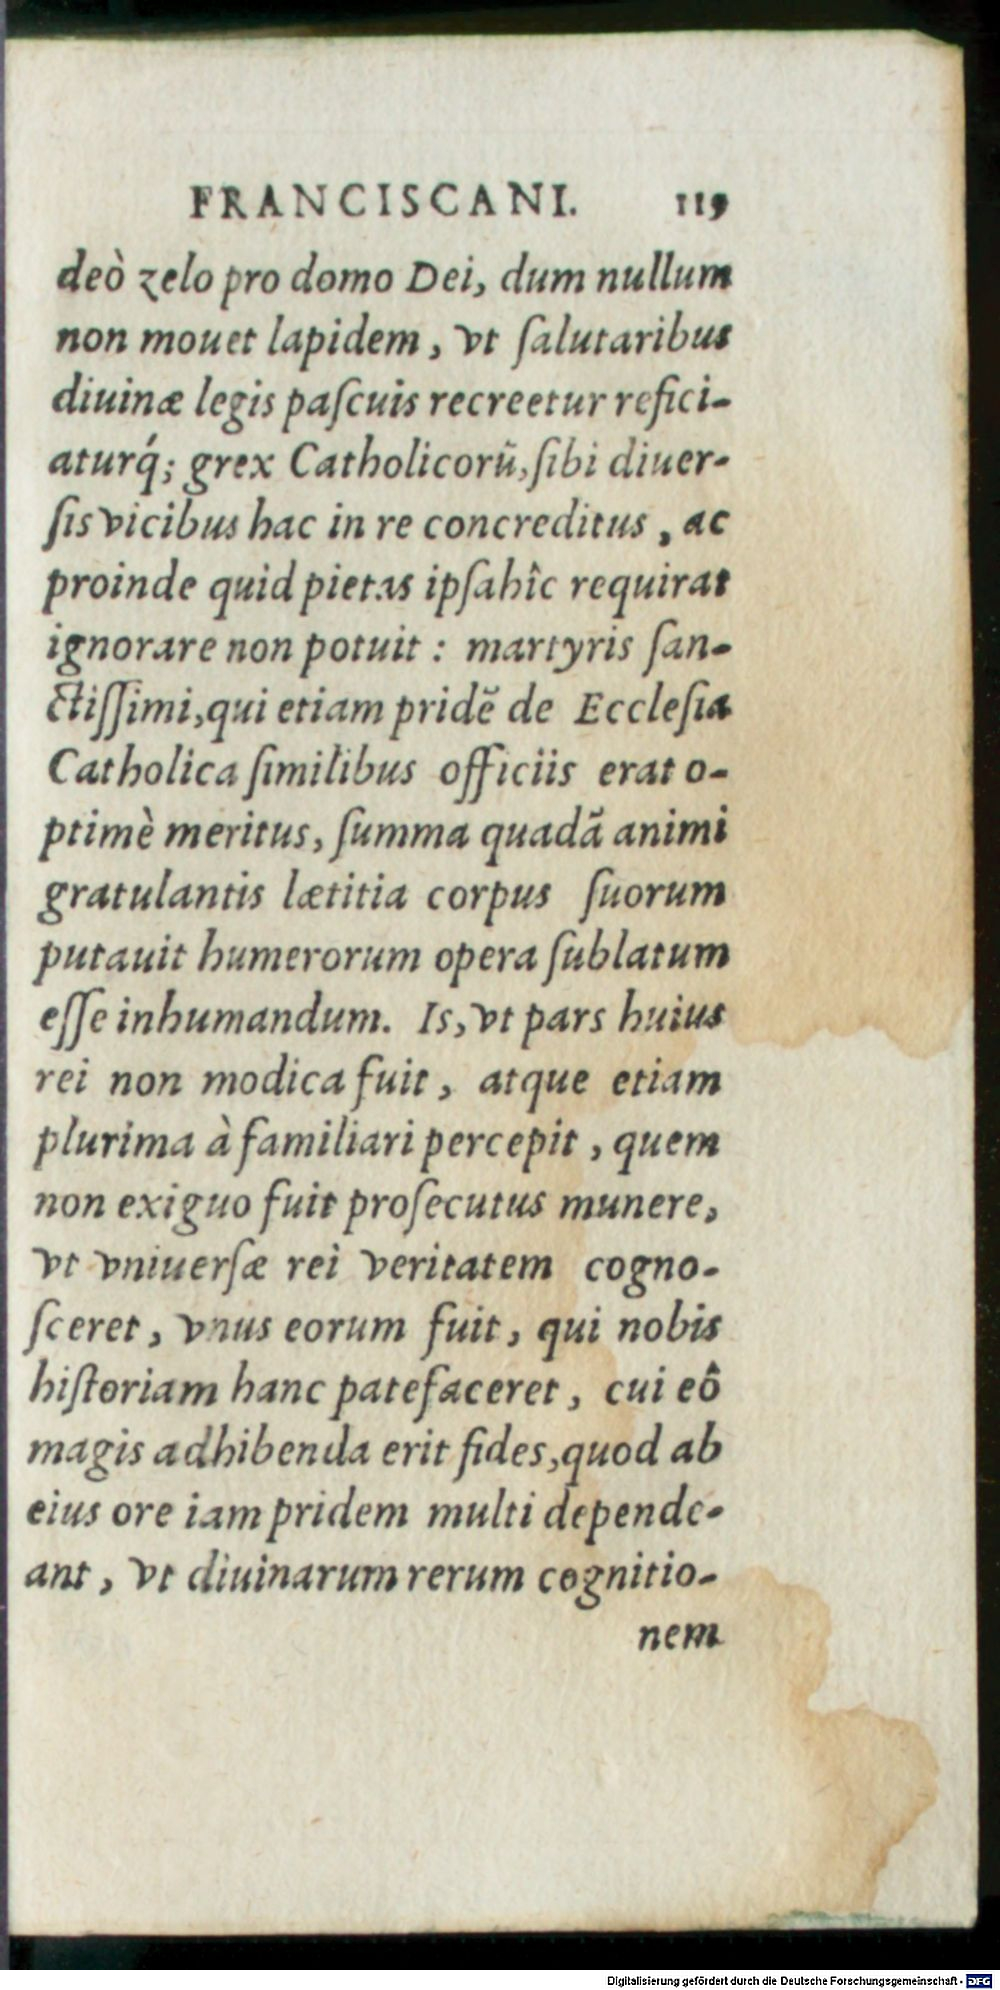 FRANCISCANI. 119
deò zelo pro domo Dei, dum nullum
non mouet lapidem, vt ſalutaribus
diuinæ legis paſcuis recreetur refici-
aturq́; grex Catholicorũ, ſibi diuer-
ſis vicibus hac in re concreditus, ac
proinde quid pietas ipſa hîc requirat
ignorare non potuit: martyris ſan-
ctiſſimi, qui etiam pridẽ de Eccleſia
Catholica ſimilibus officiis erat o-
ptimè meritus, ſumma quadã animi
gratulantis lætitia corpus ſuorum
putauit humerorum opera ſublatum
eſſe inhumandum. Is, vt pars huius
rei non modica fuit, atque etiam
plurima à familiari percepit, quem
non exiguo fuit proſecutus munere,
vt vniuerſæ rei veritatem cogno-
ſceret, vnus eorum fuit, qui nobis
hiſtoriam hanc patefaceret, cui eô
magis adhibenda erit fides, quod ab
eius ore iam pridem multi depende-
ant, vt diuinarum rerum cognitio-
nem
Digitalisierung gefördert durch die Deutsche Forschungsgemeinschaft - DFG